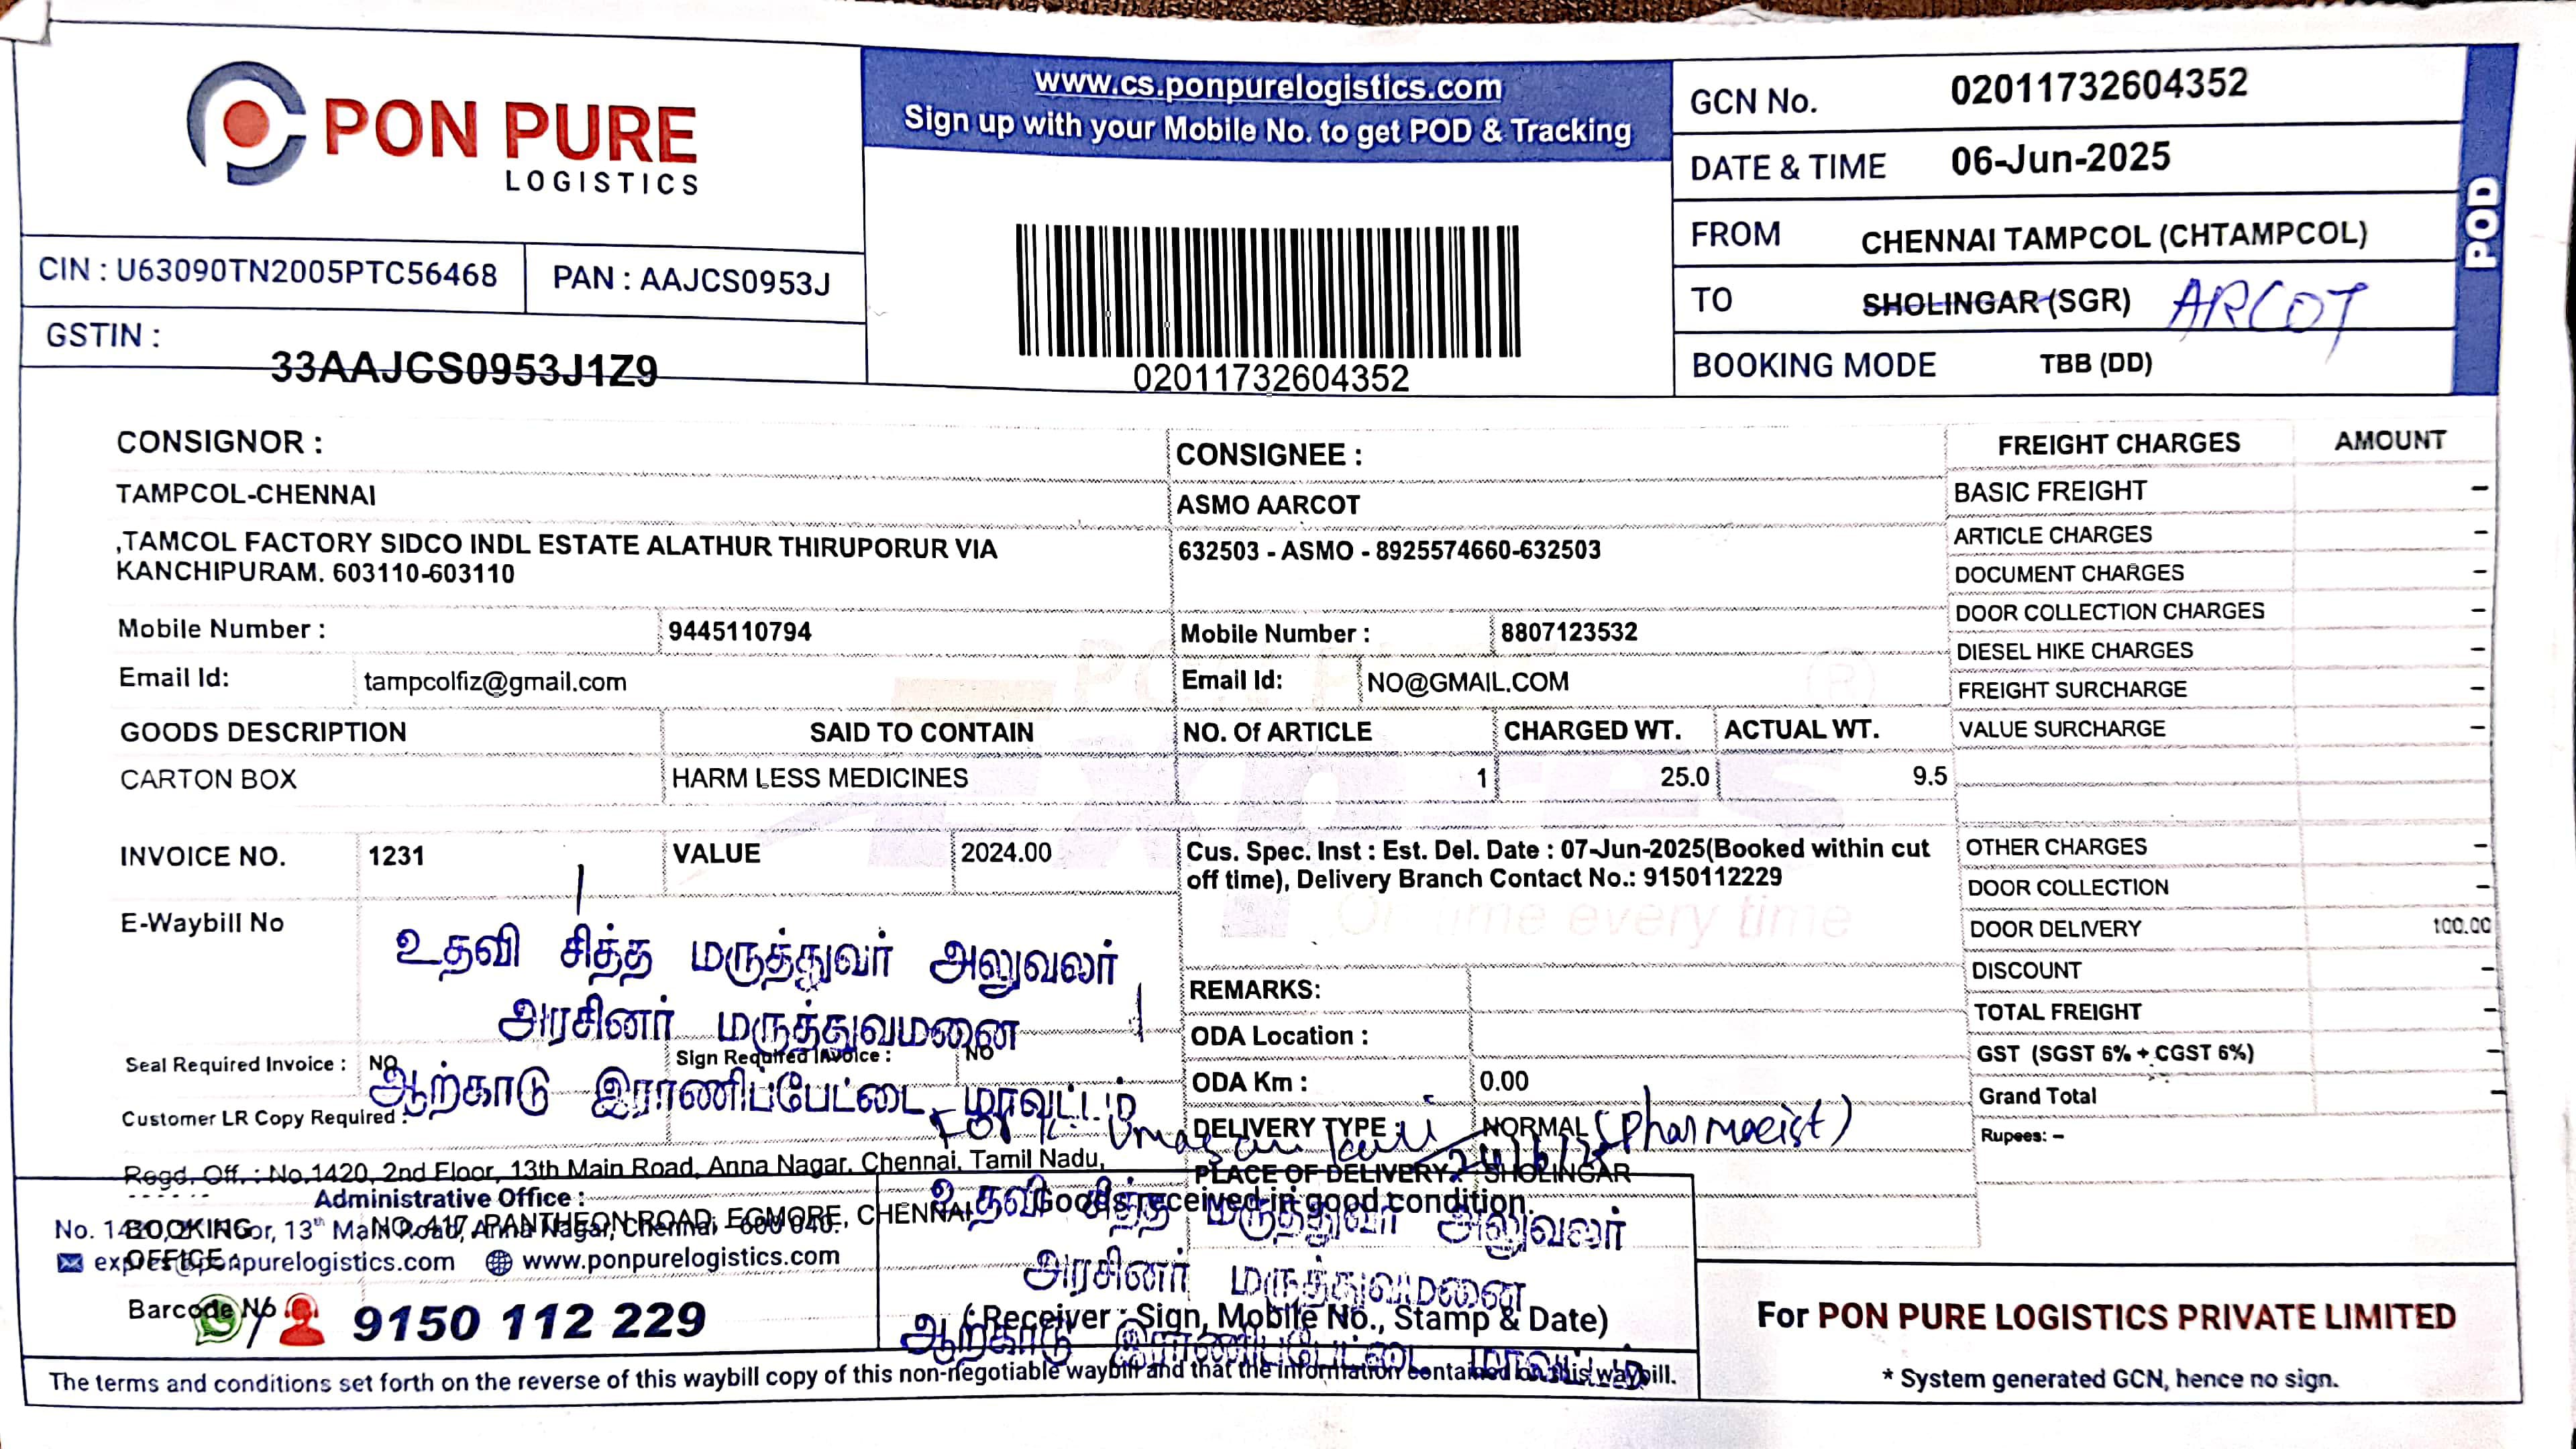 PON PURE
LOGISTICS
www.cs.ponpurelogistics.com
Sign up with your Mobile No. to get POD & Tracking
GCN No. 02011732604352
DATE & TIME 06-Jun-2025
FROM CHENNAI TAMPCOL (CHTAMPCOL)
TO SHOLINGAR (SGR) ARCOT
BOOKING MODE TBB (DD)
POD
CIN : U63090TN2005PTC56468 PAN : AAJCS0953J
GSTIN :
33AAJCS0953J1Z9
02011732604352
CONSIGNOR :
TAMPCOL-CHENNAI
,TAMCOL FACTORY SIDCO INDL ESTATE ALATHUR THIRUPORUR VIA
KANCHIPURAM. 603110-603110
Mobile Number : 9445110794
Email Id: tampcolfiz@gmail.com
CONSIGNEE :
ASMO AARCOT
632503 - ASMO - 8925574660-632503
Mobile Number : 8807123532
Email Id: NO@GMAIL.COM
GOODS DESCRIPTION SAID TO CONTAIN NO. Of ARTICLE CHARGED WT. ACTUAL WT.
CARTON BOX HARM LESS MEDICINES 1 25.0 9.5
INVOICE NO. 1231 VALUE 2024.00
Cus. Spec. Inst : Est. Del. Date : 07-Jun-2025(Booked within cut
off time), Delivery Branch Contact No.: 9150112229
On time every time
E-Waybill No
உதவி சித்த மருத்துவர் அலுவலர்
அரசினர் மருத்துவமனை
ஆற்காடு இராணிப்பேட்டை மாவட்டம்
Seal Required Invoice : NO Sign Required Invoice : NO
Customer LR Copy Required :
REMARKS:
ODA Location :
ODA Km : 0.00
DELIVERY TYPE : NORMAL
(Pharmacist)
PLACE OF DELIVERY : SHOLINGAR
FREIGHT CHARGES AMOUNT
BASIC FREIGHT -
ARTICLE CHARGES -
DOCUMENT CHARGES -
DOOR COLLECTION CHARGES -
DIESEL HIKE CHARGES -
FREIGHT SURCHARGE -
VALUE SURCHARGE -
OTHER CHARGES -
DOOR COLLECTION -
DOOR DELIVERY 100.00
DISCOUNT -
TOTAL FREIGHT -
GST (SGST 6% + CGST 6%) -
Grand Total -
Rupees: -
Regd. Off. : No.1420, 2nd Floor, 13th Main Road, Anna Nagar, Chennai, Tamil Nadu,
Administrative Office :
No. 1420, 2nd Floor, 13th Main Road, Anna Nagar, Chennai - 600 040.
BOOKING OFFICE : NO. 417, PANTHEON ROAD, EGMORE, CHENNAI
express@ponpurelogistics.com www.ponpurelogistics.com
Barcode No
9150 112 229
Goods received in good condition.
உதவி சித்த மருத்துவர் அலுவலர்
அரசினர் மருத்துவமனை
ஆற்காடு இராணிப்பேட்டை மாவட்டம்
( Receiver - Sign, Mobile No., Stamp & Date)
For PON PURE LOGISTICS PRIVATE LIMITED
* System generated GCN, hence no sign.
The terms and conditions set forth on the reverse of this waybill copy of this non-negotiable waybill and that the information contained on this waybill.